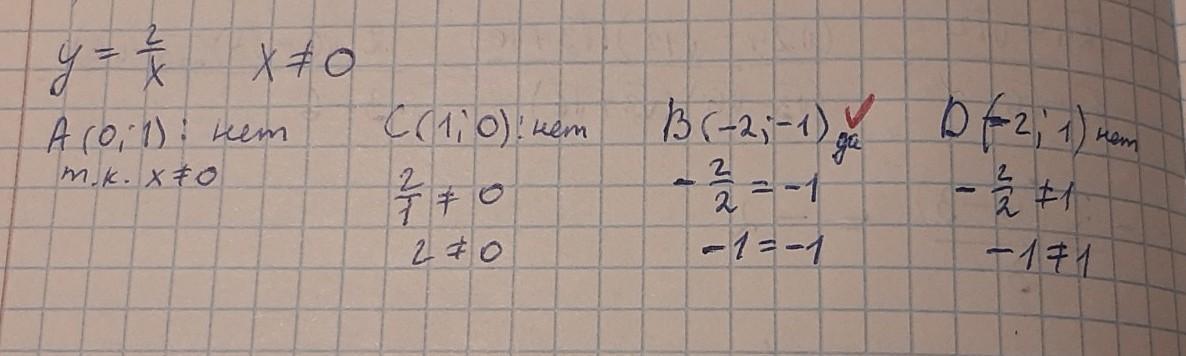 y = 2/x   x ≠ 0
A (0; 1): нет
т.к. x ≠ 0
C (1; 0): нет
2/1 ≠ 0
2 ≠ 0
B (-2; -1) ✓ да
- 2/2 = -1
-1 = -1
D (-2; 1) нет
- 2/2 ≠ 1
-1 ≠ 1